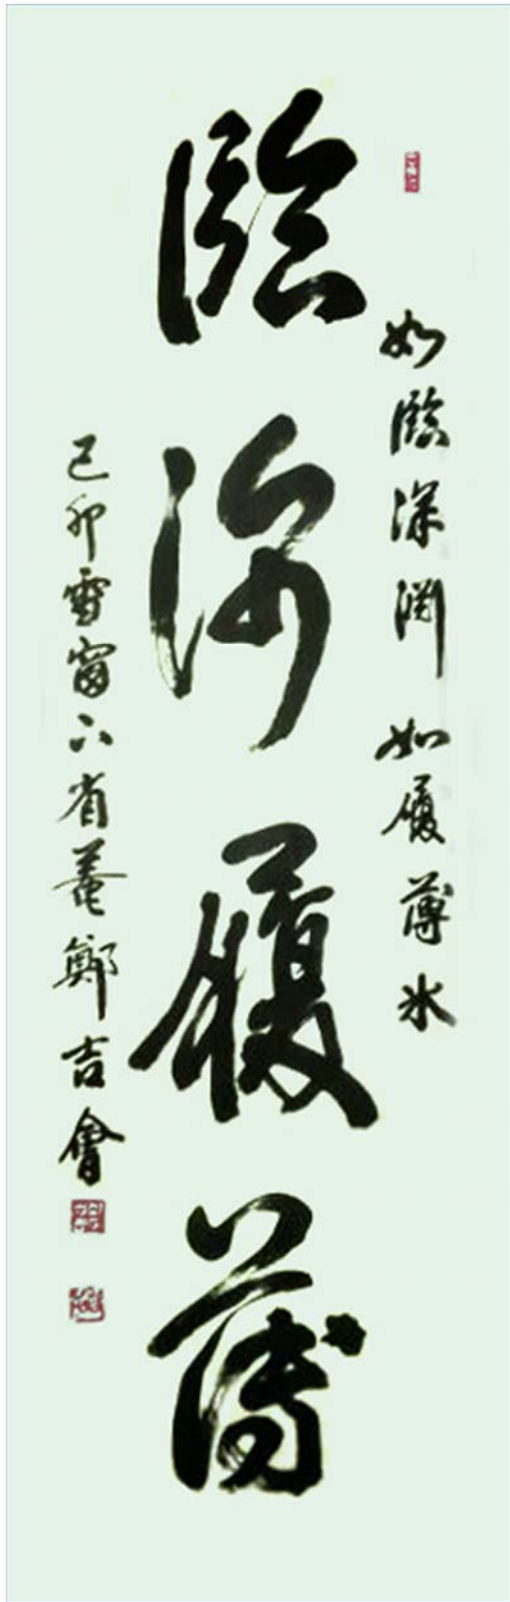 如臨深淵 如履薄氷
臨深履薄
己卯雪窗下省菴鄭吉會